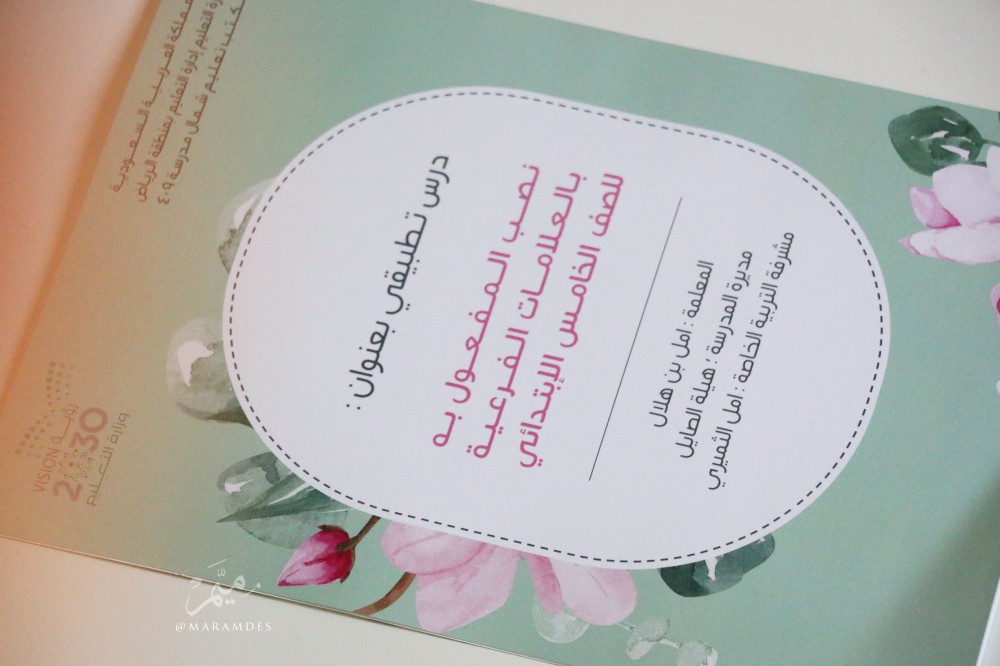 المملكة العربية السعودية
وزارة التعليم إدارة التعليم بمنطقة الرياض
مكتب تعليم شمال مدرسة ٤٠٩
رؤية
VISION
2030
وزارة التعليم
درس تطبيقي بعنوان :
نصب المفعول به
بالعلامات الفرعية
للصف الخامس الإبتدائي
المعلمة : امل بن هلال
مديرة المدرسة : هيلة الصايل
مشرفة التربية الخاصة : امل الثميري
@MARAMDES